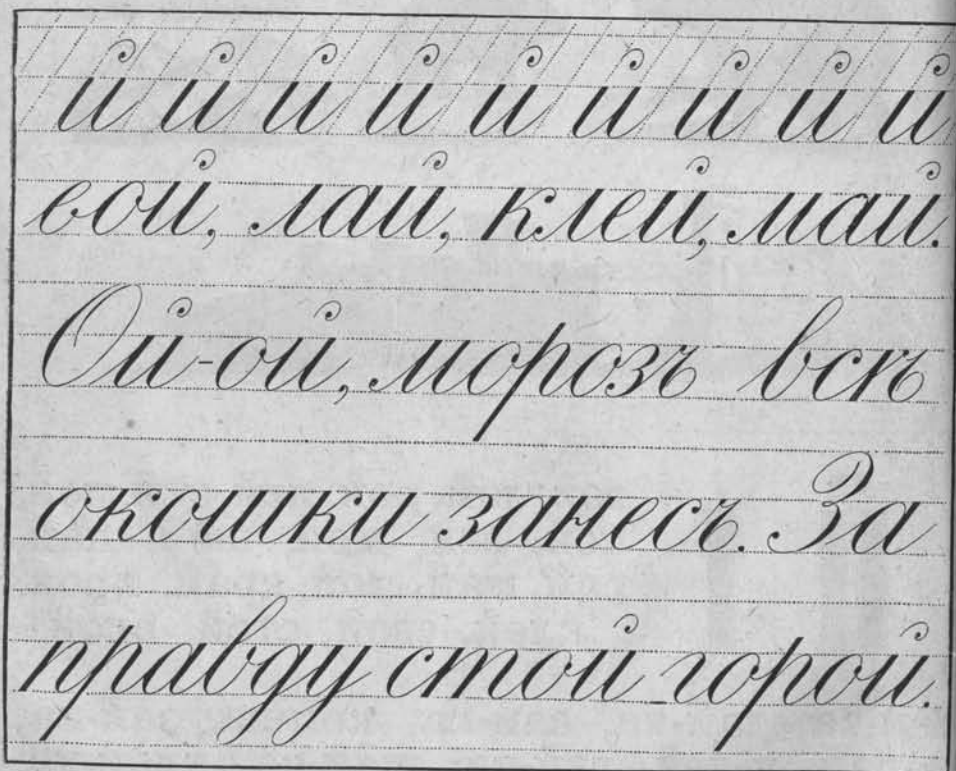 й й й й й й й й й
вой, лай, клей, май.
Ой-ой, морозъ всѣ
окошки занесъ. За
правду стой горой.